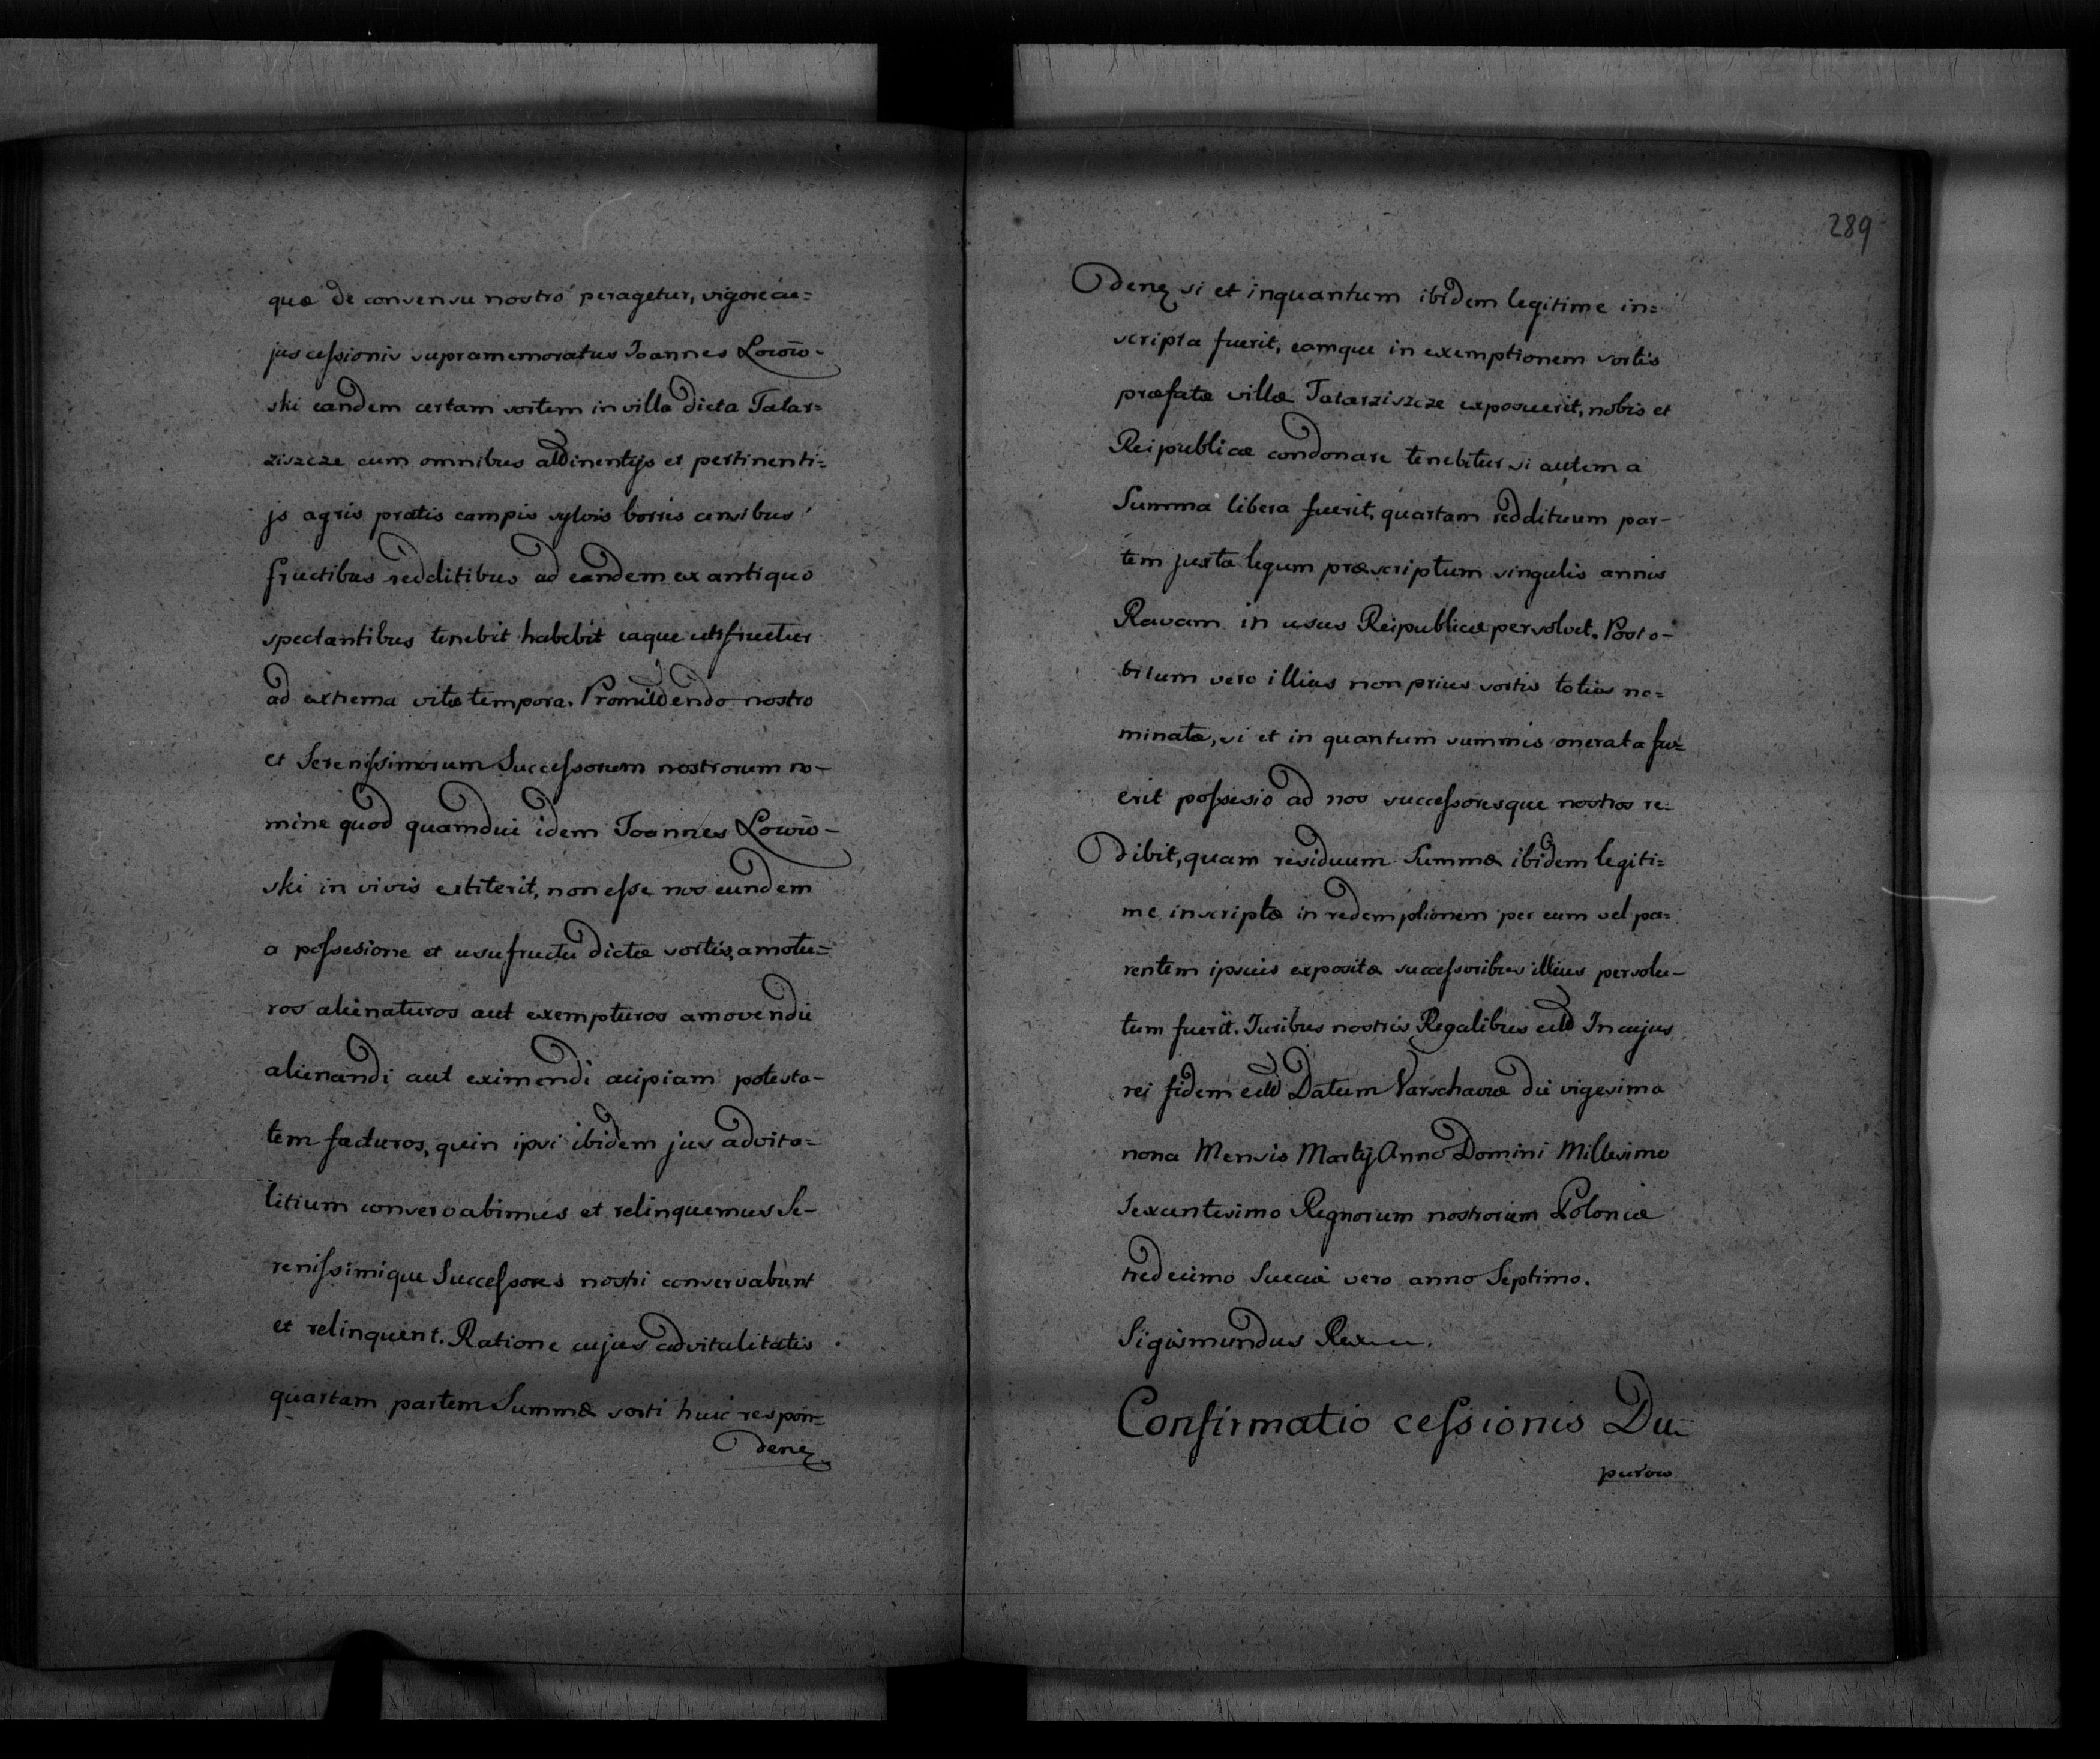 quæ de consensu nostro peragetur, vigore cu=
jus cessionis supramemoratus Joannes Lowiw-
ski eandem certam sortem in villa dicta Tatar=
ziszcze cum omnibus attinentijs et pertinenti=
js agris pratis campis sylvis borris censibus
fructibus redditibus ad eandem ex antiquo
spectantibus tenebit habebit eaque utifruetur
ad extrema vitæ tempora. Promittendo nostro
et Serenissimorum Successorum nostrorum no-
mine quod quamdui idem Joannes Lowiw-
ski in vivis extiterit, non esse nos eundem
a possesione et usufructu dictæ sortis, amotu=
ros alienaturos aut exempturos amovendi
alienandi aut eximendi cuipiam potesta-
tem facturos, quin ipsi ibidem jus advita=
litium conservabimus et relinquemus Se-
renissimique Successores nostri conservabunt
et relinquent. Ratione cujus advitalitatis
quartam partem Summæ sorti huic respon=
denę
289
denę si et inquantum ibidem legitime in=
scripta fuerit, eamque in exemptionem sortis
præfatæ villæ Tatarziszcze exposuerit, nobis et
Reipublicæ condonare tenebitur si autem a
Summa libera fuerit, quartam reddituum par-
tem juxta legum præscriptum singulis annis
Ravam in usus Reipublicæ persolvet. Post o-
bitum vero illius non prius sortis totius no=
minatæ, si et in quantum summis onerata fu=
erit possesio ad nos successoresque nostros re=
dibit, quam residuum Summæ ibidem legiti=
me inscriptæ in redemptionem per eum vel pa=
rentem ipsius expositæ successoribus illius persolu-
tum fuerit. Juribus nostris Regalibus ettt In cujus
rei fidem ettt Datum Varschaviæ die vigesima
nona Mensis Martij Anno Domini Millesimo
Sexcentesimo Regnorum nostrorum Poloniæ
tredecimo Sueciæ vero anno Septimo.
Sigismundus Rex
Confirmatio cessionis Du=
purow